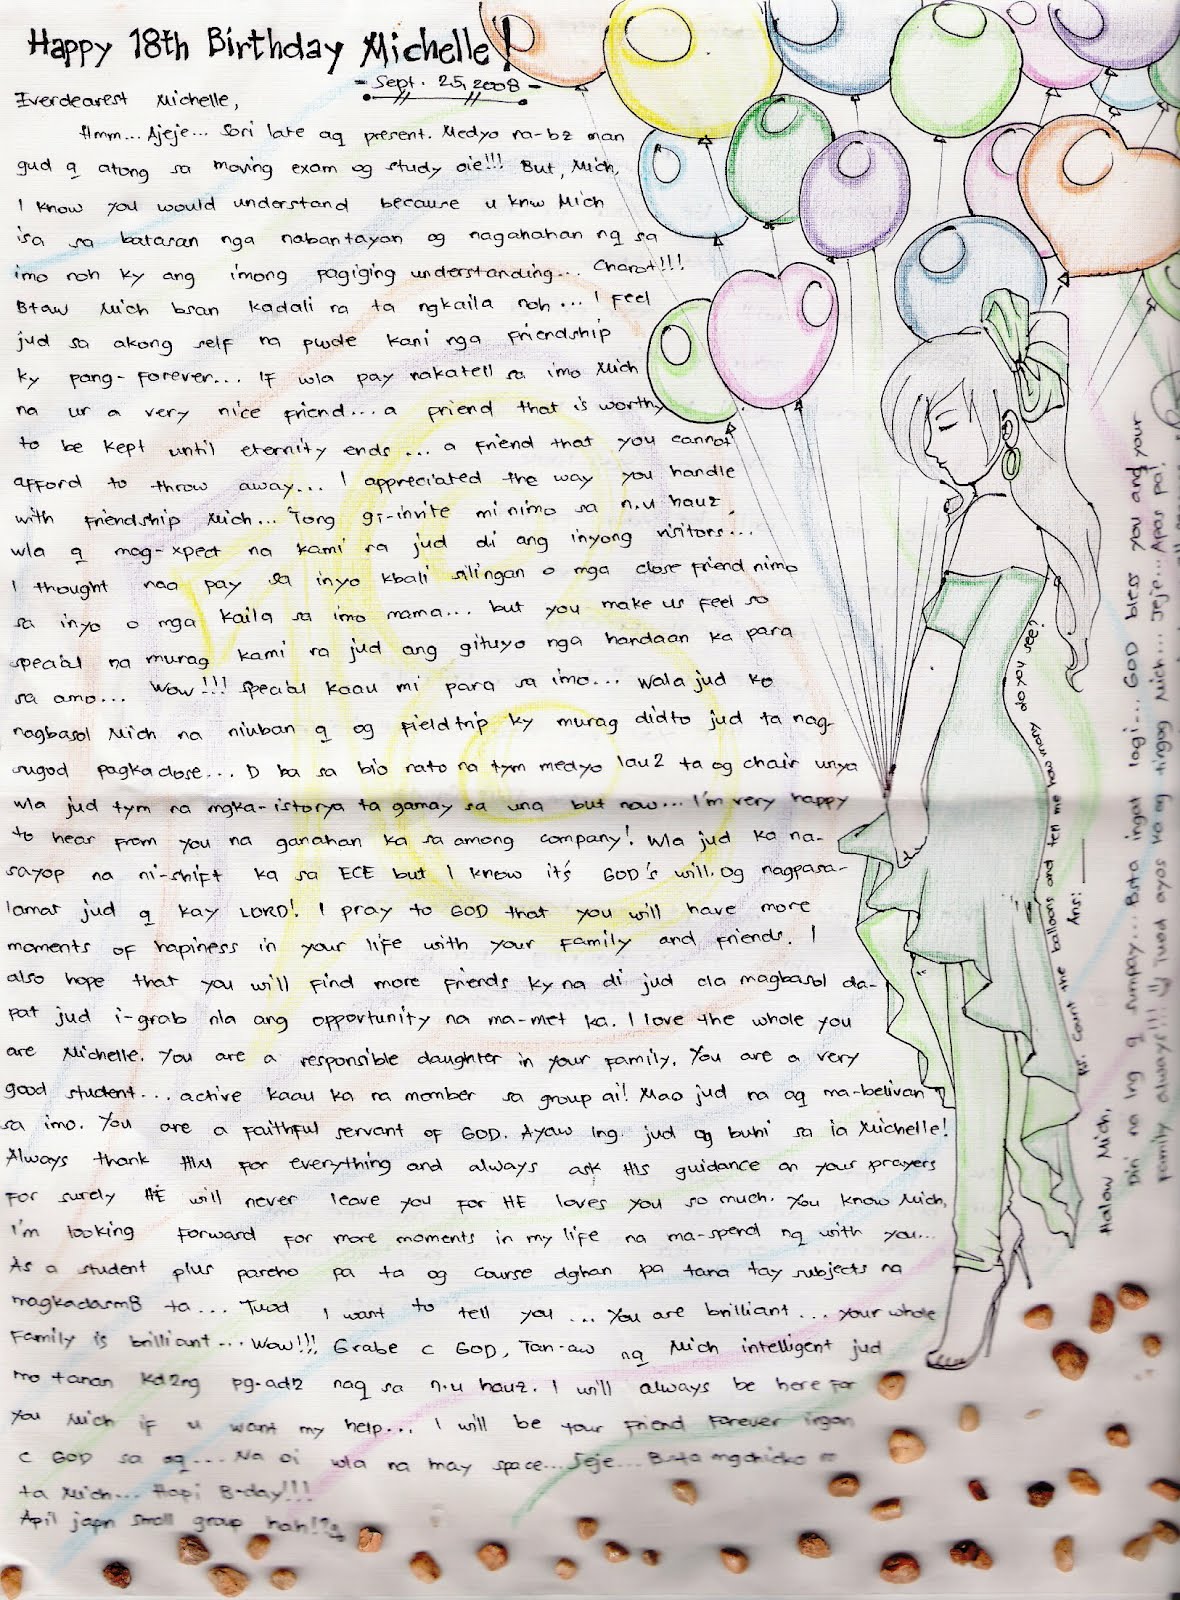 Happy 18th Birthday Michelle!
- Sept. 25, 2008 -
Everdearest Michelle,
Hmm... Ajeje... Sori late aq present. Medyo na-bz man
gud q atong sa moving exam og study oie!!! But, Mich,
I know you would understand because u knw Mich
isa sa batasan nga nabantayan og naganahan nq sa
imo noh ky ang imong pagiging understanding... Charot!!!
Btaw Mich bsan kadali ra ta ngkaila noh... I feel
jud sa akong self na pwde kani nga friendship
ky pang-forever... If wla pay nakatell sa imo Mich
na ur a very nice friend... a friend that is worthy
to be kept until eternity ends... a friend that you cannot
afford to throw away... I appreciated the way you handle
with friendship Mich... Tong gi-invite mi nimo sa n.u hauz,
wla q mag-xpect na kami ra jud di ang inyong visitors...
I thought naa pay sa inyo kbali silingan o mga close friend nimo
sa inyo o mga kaila sa imo mama... but you make us feel so
special na murag kami ra jud ang gituyo nga handaan ka para
sa amo... Wow!!! Special kaau mi para sa imo... Wala jud ko
nagbasol Mich na niuban q og fieldtrip ky murag didto jud ta nag-
sugod pagkaclose... D ba sa bio rato na tym medyo lau2 ta og chair unya
wla jud tym na mgka-istorya ta gamay sa una but now... I'm very happy
to hear from you na ganahan ka sa among company! Wla jud ka na-
sayop na ni-shift ka sa ECE but I know it's GOD's will. Og nagpasa-
lamat jud q kay LORD! I pray to GOD that you will have more
moments of hapiness in your life with your family and friends. I
also hope that you will find more friends ky na di jud cla magbasol da-
pat jud i-grab nla ang opportunity na ma-met ka. I love the whole you
are Michelle. You are a responsible daughter in your family. You are a very
good student... active kaau ka na member sa group ai! Mao jud na aq ma-belivan
sa imo. You are a faithful servant of GOD. Ayaw lng jud og buhi sa ia Michelle!
Always thank HIM for everything and always ask His guidance on your prayers
for surely HE will never leave you for HE loves you so much. You know Mich,
I'm looking forward for more moments in my life na ma-spend nq with you...
As a student plus pareho pa ta og course dghan pa tana tay subjects na
magkadasm8 ta... Tuod I want to tell you... You are brilliant... your whole
family is brilliant... Wow!!! Grabe c GOD, Tan-aw nq Mich intelligent jud
mo tanan kd2ng pg-ad2 naq sa n.u hauz. I will always be here for
you Mich if u want my help... I will be your friend forever ingon
c GOD sa aq... Na oi wla na may space... Jeje... Basta
ta Mich... Hapi B-day!!!
Apil japn small group hah!?
Halow Mich,
Diri na lng q sumpay... Bsta ingat lagi... GOD bless you and your
family always!!! Tuod ayos ka og tingog Mich... Jeje... Apas pa!
Count the balloons and tell me how many do you see?
Ans: ______